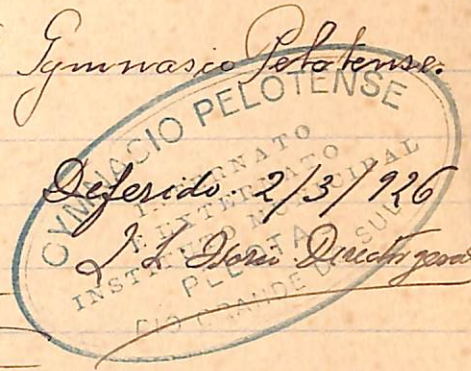 Gymnasio Pelotense.
GYMNACIO PELOTENSE
INTERNATO
E EXTERNATO
INSTITUTO MUNICIPAL
PELOTAS
RIO GRANDE DO SUL
Deferido. 2/3/926
Director geral